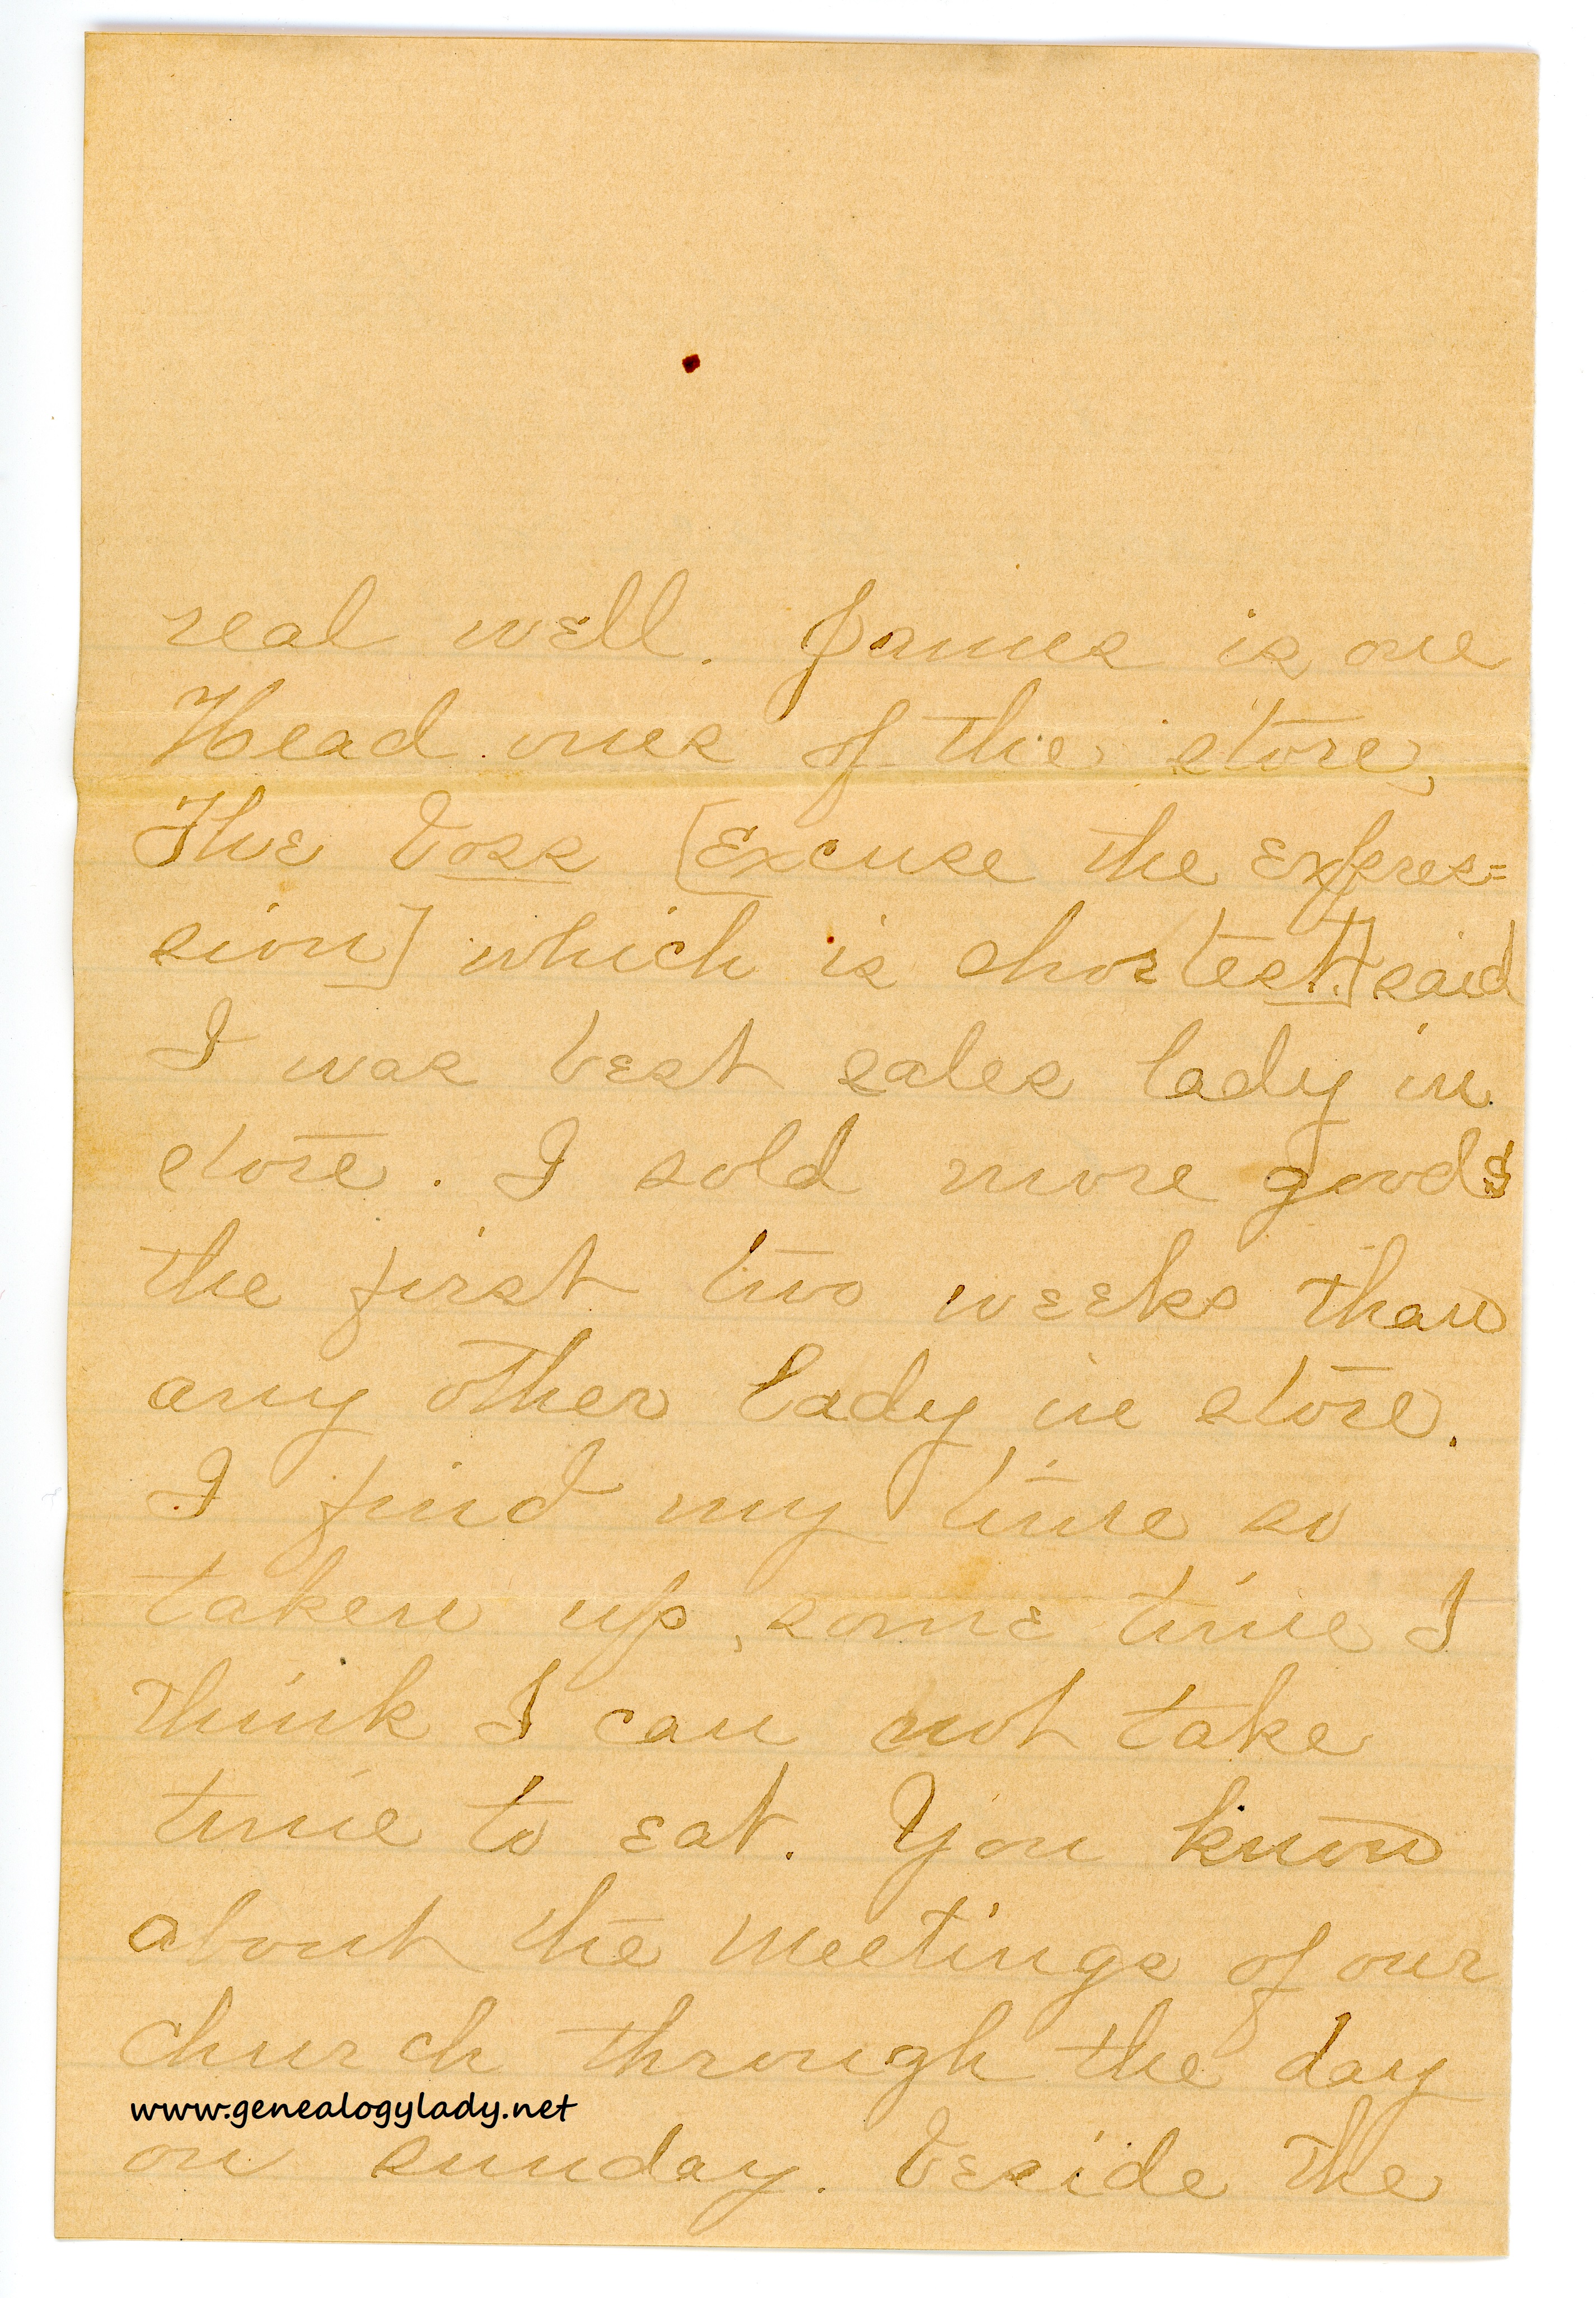 real well. James is one
Head ones of the store,
The boss [Excuse the expres=
sion] which is shortest] said
I was best sales lady in
store. I sold more goods
the first two weeks than
any other lady in store.
I find my time so
taken up, some time I
think I can not take
time to eat. You know
about the meetings of our
church through the day
www.genealogylady.net
on sunday. beside the